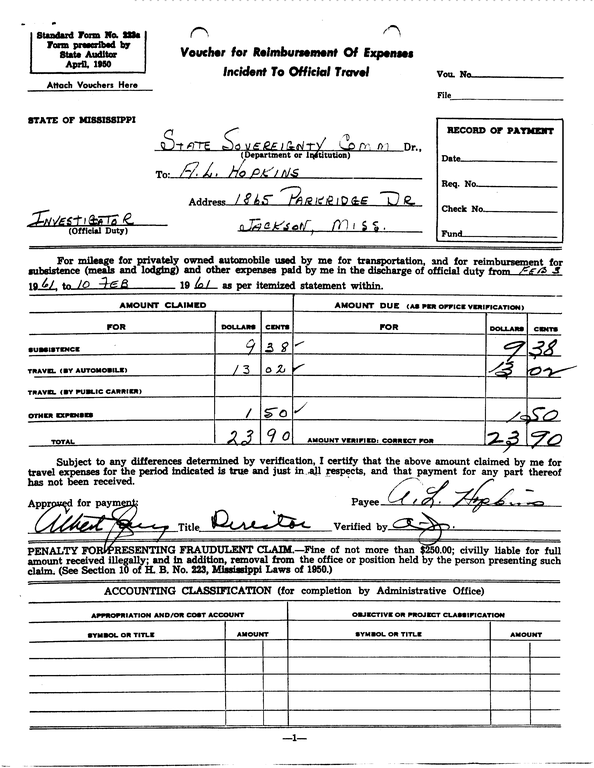 Standard Form No. 223a
Form prescribed by
State Auditor
April, 1950
Attach Vouchers Here
Voucher for Reimbursement Of Expenses
Incident To Official Travel
Vou. No.
File
STATE OF MISSISSIPPI
STATE SOVEREIGNTY COMM Dr.,
(Department or Institution)
To: A.L. HOPKINS
Address 1865 PARKRIDGE DR
JACKSON, MISS.
INVESTIGATOR
(Official Duty)
RECORD OF PAYMENT
Date
Req. No.
Check No.
Fund
For mileage for privately owned automobile used by me for transportation, and for reimbursement for
subsistence (meals and lodging) and other expenses paid by me in the discharge of official duty from FEB 3
1961, to 10 FEB 1961 as per itemized statement within.
AMOUNT CLAIMED AMOUNT DUE (AS PER OFFICE VERIFICATION)
FOR DOLLARS CENTS FOR DOLLARS CENTS
SUBSISTENCE 9 38 ✓ 9 38
TRAVEL (BY AUTOMOBILE) 13 02 ✓ 13 02
TRAVEL (BY PUBLIC CARRIER)
OTHER EXPENSES 1 50 ✓ 1 50
TOTAL 23 90 AMOUNT VERIFIED: CORRECT FOR 23 90
Subject to any differences determined by verification, I certify that the above amount claimed by me for
travel expenses for the period indicated is true and just in all respects, and that payment for any part thereof
has not been received.
Approved for payment: Payee A.L. Hopkins
Albert Title Director Verified by
PENALTY FOR PRESENTING FRAUDULENT CLAIM.—Fine of not more than $250.00; civilly liable for full
amount received illegally; and in addition, removal from the office or position held by the person presenting such
claim. (See Section 10 of H. B. No. 223, Mississippi Laws of 1950.)
ACCOUNTING CLASSIFICATION (for completion by Administrative Office)
APPROPRIATION AND/OR COST ACCOUNT OBJECTIVE OR PROJECT CLASSIFICATION
SYMBOL OR TITLE AMOUNT SYMBOL OR TITLE AMOUNT
—1—